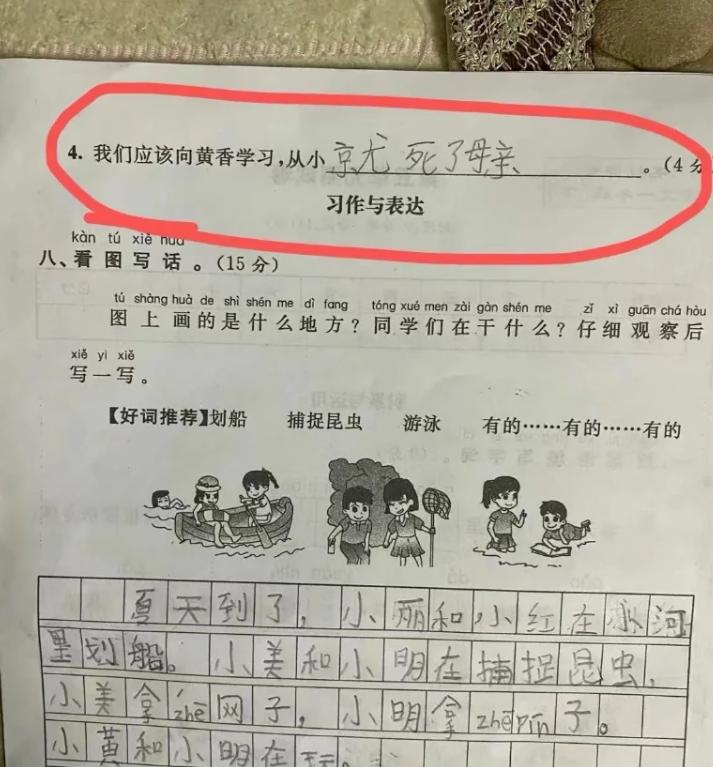 4. 我们应该向黄香学习，从小京尤 死了母亲。(4分
习作与表达
kàn tú xiě huà
八、看图写话。(15分)
tú shàng huà de shì shén me dì fang tóng xué men zài gàn shén me zǐ xì guān chá hòu
图上画的是什么地方？同学们在干什么？仔细观察后
xiě yi xiě
写一写。
【好词推荐】划船 捕捉昆虫 游泳 有的……有的……有的
夏天到了，小丽和小红在小河
里划船。小美和小明在捕捉昆虫，
小美拿zhē网子，小明拿zhē pín子。
小黄和小明在玩。